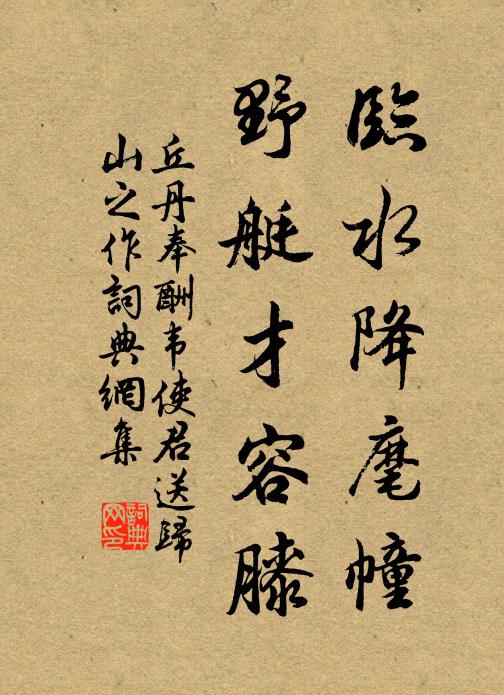 臨水降麾幢
野艇才容膝
丘丹奉酬韦使君送歸
山之作詞典網集
詞典
网印